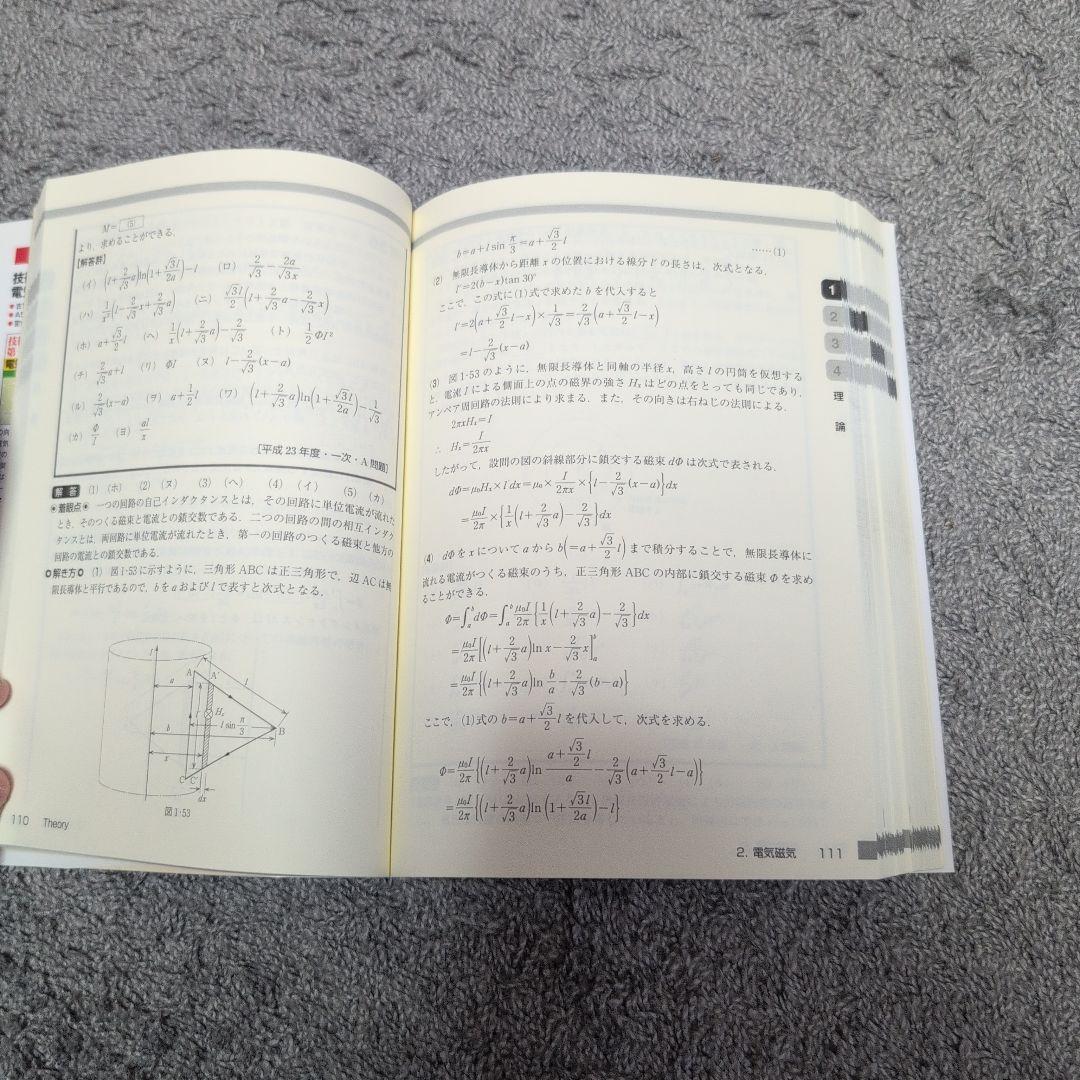 M= (5)
より,求めることができる.
[解答群]
(イ) (l+2/√3 a)ln(1+√3l/2a)-l (ロ) 2/√3-2a/√3x
(ハ) 1/x²(l-2/√3 x+2/√3 a) (ニ) √3l/2(l+2/√3 a-2/√3 x)
(ホ) a+√3/2 l (ヘ) 1/x(l+2/√3 a)-2/√3 (ト) 1/2 ΦI²
(チ) 2/√3 a+l (リ) ΦI (ヌ) l-2/√3(x-a)
(ル) 2/√3(x-a) (ヲ) a+1/2 l (ワ) (l+2/√3 a)ln(1+√3l/2a)-1/√3
(カ) Φ/I (ヨ) al/x
[平成23年度・一次・A問題]
解答 (1) (ホ) (2) (ヌ) (3) (ヘ) (4) (イ) (5) (カ)
●着眼点● 一つの回路の自己インダクタンスとは,その回路に単位電流が流れた
とき,そのつくる磁束と電流との鎖交数である.二つの回路の間の相互インダク
タンスとは,両回路に単位電流が流れたとき,第一の回路のつくる磁束と他方の
回路の電流との鎖交数である.
○解き方○ (1) 図1・53に示すように,三角形ABCは正三角形で,辺ACは無
限長導体と平行であるので,bをaおよびlで表すと次式となる.
I
A A′ l
a
Hx
b
l sin π/3
B
x
C C′
dx
図1・53
110 Theory
b=a+l sin π/3=a+√3/2 l ……(1)
(2) 無限長導体から距離xの位置における線分l′の長さは,次式となる.
l′=2(b-x)tan 30°
ここで,この式に(1)式で求めたbを代入すると
l′=2(a+√3/2 l-x)×1/√3=2/√3(a+√3/2 l-x)
=l-2/√3(x-a)
(3) 図1・53のように,無限長導体と同軸の半径x,高さlの円筒を仮想する
と,電流Iによる側面上の点の磁界の強さHxはどの点をとっても同じであり,
アンペア周回路の法則により求まる.また,その向きは右ねじの法則による.
2πxHx=I
∴ Hx=I/2πx
したがって,設問の図の斜線部分に鎖交する磁束dΦは次式で表される.
dΦ=μ0Hx×l′dx=μ0×I/2πx×{l-2/√3(x-a)}dx
=μ0I/2π×{1/x(l+2/√3 a)-2/√3}dx
(4) dΦをxについてaからb(=a+√3/2 l)まで積分することで,無限長導体に
流れる電流がつくる磁束のうち,正三角形ABCの内部に鎖交する磁束Φを求め
ることができる.
Φ=∫ₐᵇdΦ=∫ₐᵇ μ0I/2π{1/x(l+2/√3 a)-2/√3}dx
=μ0I/2π[(l+2/√3 a)ln x-2/√3 x]ₐᵇ
=μ0I/2π{(l+2/√3 a)ln b/a-2/√3(b-a)}
ここで,(1)式のb=a+√3/2 lを代入して,次式を求める.
Φ=μ0I/2π{(l+2/√3 a)ln (a+√3/2 l)/a-2/√3(a+√3/2 l-a)}
=μ0I/2π{(l+2/√3 a)ln(1+√3l/2a)-l}
1
2
3
4
理
論
2. 電気磁気 111